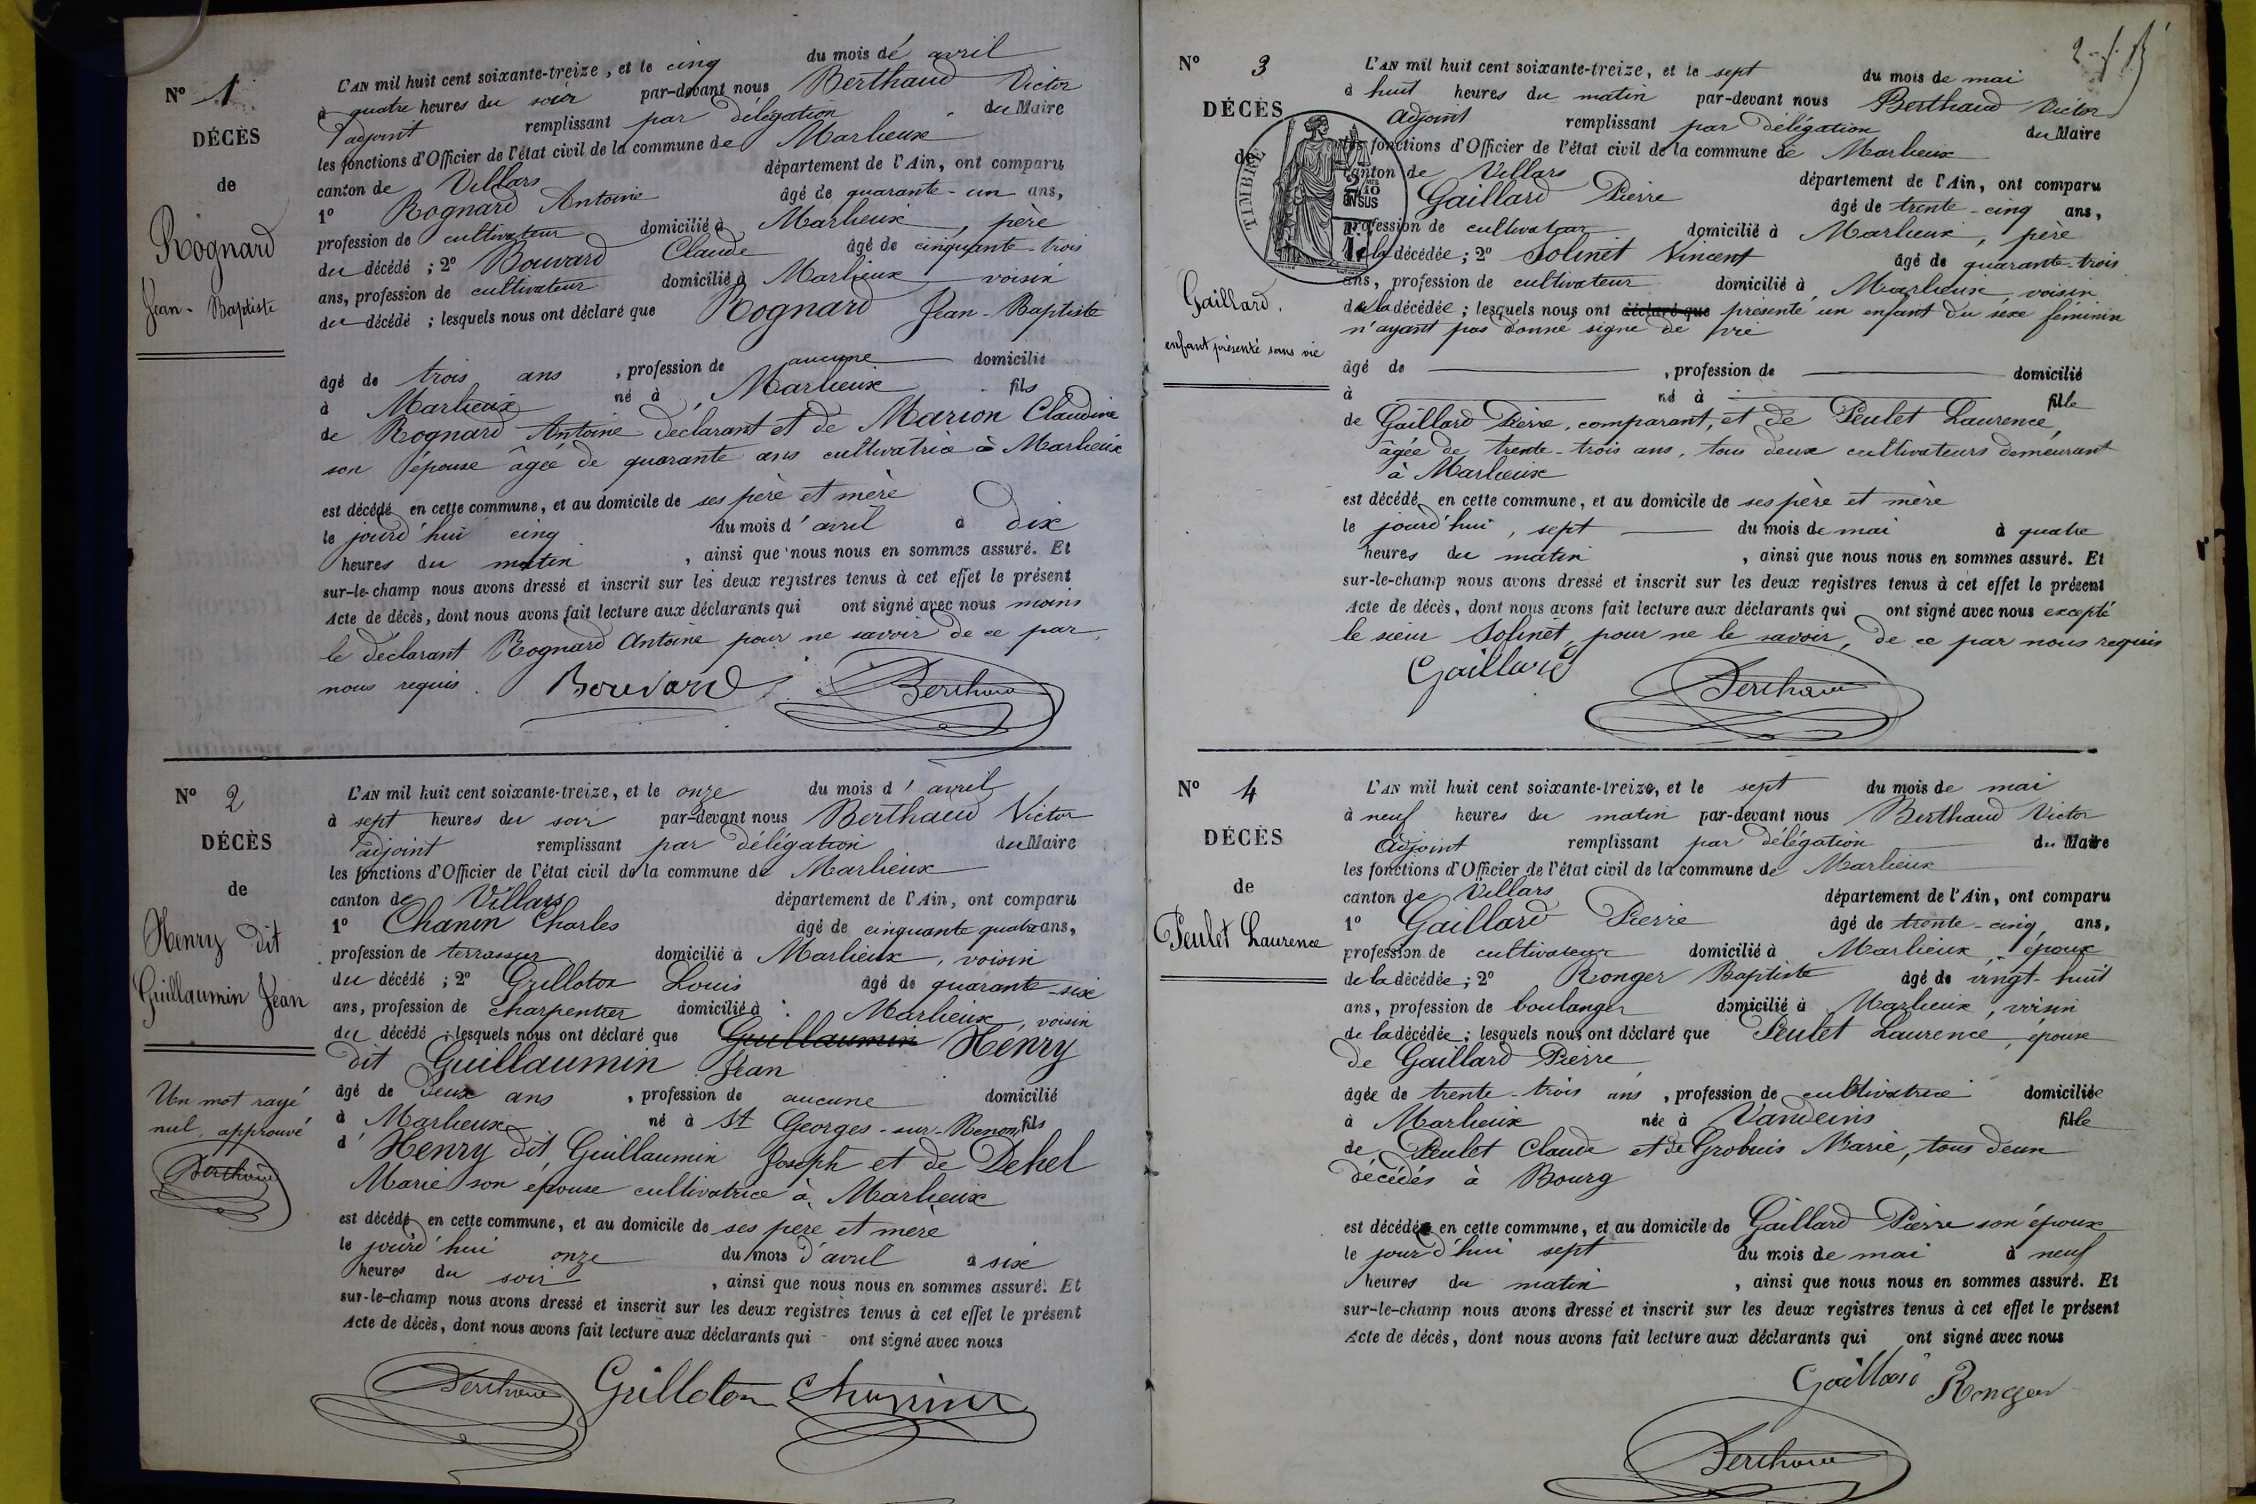 N° 1
DÉCÈS
de
Rognard
Jean-Baptiste
L'AN mil huit cent soixante-treize, et le cinq du mois de avril
à quatre heures du soir par-devant nous Berthaud Victor
adjoint remplissant par délégation du Maire
les fonctions d'Officier de l'état civil de la commune de Marlieux
canton de Villars département de l'Ain, ont comparu
1° Rognard Antoine âgé de quarante-un ans,
profession de cultivateur domicilié à Marlieux, père
du décédé ; 2° Bouvard Claude âgé de cinquante-trois
ans, profession de cultivateur domicilié à Marlieux voisin
du décédé ; lesquels nous ont déclaré que Rognard Jean-Baptiste
âgé de trois ans, profession de aucune domicilié
à Marlieux né à Marlieux fils
de Rognard Antoine déclarant et de Marion Claudine
son épouse âgée de quarante ans cultivatrice à Marlieux
est décédé en cette commune, et au domicile de ses père et mère
le jourd'hui cinq du mois d'avril à dix
heures du matin, ainsi que nous nous en sommes assuré. Et
sur-le-champ nous avons dressé et inscrit sur les deux registres tenus à cet effet le présent
Acte de décès, dont nous avons fait lecture aux déclarants qui ont signé avec nous moins
le déclarant Rognard Antoine pour ne savoir de ce par
nous requis. Bouvard Berthaud
N° 2
DÉCÈS
de
Henry dit
Guillaumin Jean
Un mot rayé
nul, approuvé
Berthaud
L'AN mil huit cent soixante-treize, et le onze du mois d'avril
à sept heures du soir par-devant nous Berthaud Victor
adjoint remplissant par délégation du Maire
les fonctions d'Officier de l'état civil de la commune de Marlieux
canton de Villars département de l'Ain, ont comparu
1° Chanin Charles âgé de cinquante quatre ans,
profession de terrassier domicilié à Marlieux, voisin
du décédé ; 2° Grilloton Louis âgé de quarante-six
ans, profession de charpentier domicilié à Marlieux, voisin
du décédé ; lesquels nous ont déclaré que Guillaumin Henry
dit Guillaumin Jean
âgé de deux ans, profession de aucune domicilié
à Marlieux né à St Georges-sur-Renon fils
d'Henry dit Guillaumin Joseph et de Dehel
Marie son épouse cultivatrice à Marlieux
est décédé en cette commune, et au domicile de ses père et mère
le jourd'hui onze du mois d'avril à six
heures du soir, ainsi que nous nous en sommes assuré. Et
sur-le-champ nous avons dressé et inscrit sur les deux registres tenus à cet effet le présent
Acte de décès, dont nous avons fait lecture aux déclarants qui ont signé avec nous
Berthaud Grilloton Chanin
N° 3
DÉCÈS
de
TIMBRE
Gaillard.
enfant présenté sans vie
L'AN mil huit cent soixante-treize, et le sept du mois de mai
à huit heures du matin par-devant nous Berthaud Victor
adjoint remplissant par délégation du Maire
les fonctions d'Officier de l'état civil de la commune de Marlieux
canton de Villars département de l'Ain, ont comparu
Gaillard Pierre âgé de trente-cinq ans,
profession de cultivateur domicilié à Marlieux, père
de la décédée ; 2° Solinet Vincent âgé de quarante-trois
ans, profession de cultivateur domicilié à Marlieux, voisin
de la décédée ; lesquels nous ont déclaré que présenté un enfant du sexe féminin
n'ayant pas donné signe de vie
âgé de , profession de domicilié
à né à fille
de Gaillard Pierre, comparant, et de Peulet Laurence,
âgée de trente-trois ans, tous deux cultivateurs demeurant
à Marlieux
est décédé en cette commune, et au domicile de ses père et mère
le jourd'hui, sept du mois de mai à quatre
heures du matin, ainsi que nous nous en sommes assuré. Et
sur-le-champ nous avons dressé et inscrit sur les deux registres tenus à cet effet le présent
Acte de décès, dont nous avons fait lecture aux déclarants qui ont signé avec nous excepté
le sieur Solinet, pour ne le savoir, de ce par nous requis
Gaillard Berthaud
N° 4
DÉCÈS
de
Peulet Laurence
L'AN mil huit cent soixante-treize, et le sept du mois de mai
à neuf heures du matin par-devant nous Berthaud Victor
adjoint remplissant par délégation du Maire
les fonctions d'Officier de l'état civil de la commune de Marlieux
canton de Villars département de l'Ain, ont comparu
1° Gaillard Pierre âgé de trente-cinq ans,
profession de cultivateur domicilié à Marlieux, époux
de la décédée ; 2° Ronger Baptiste âgé de vingt-huit
ans, profession de boulanger domicilié à Marlieux, voisin
de la décédée ; lesquels nous ont déclaré que Peulet Laurence, épouse
de Gaillard Pierre
âgée de trente-trois ans, profession de cultivatrice domiciliée
à Marlieux née à Vandeins fille
de Peulet Claude et de Grobuis Marie, tous deux
décédés à Bourg
est décédée en cette commune, et au domicile de Gaillard Pierre son époux
le jour d'hui sept du mois de mai à neuf
heures du matin, ainsi que nous nous en sommes assuré. Et
sur-le-champ nous avons dressé et inscrit sur les deux registres tenus à cet effet le présent
Acte de décès, dont nous avons fait lecture aux déclarants qui ont signé avec nous
Gaillard Ronger
Berthaud